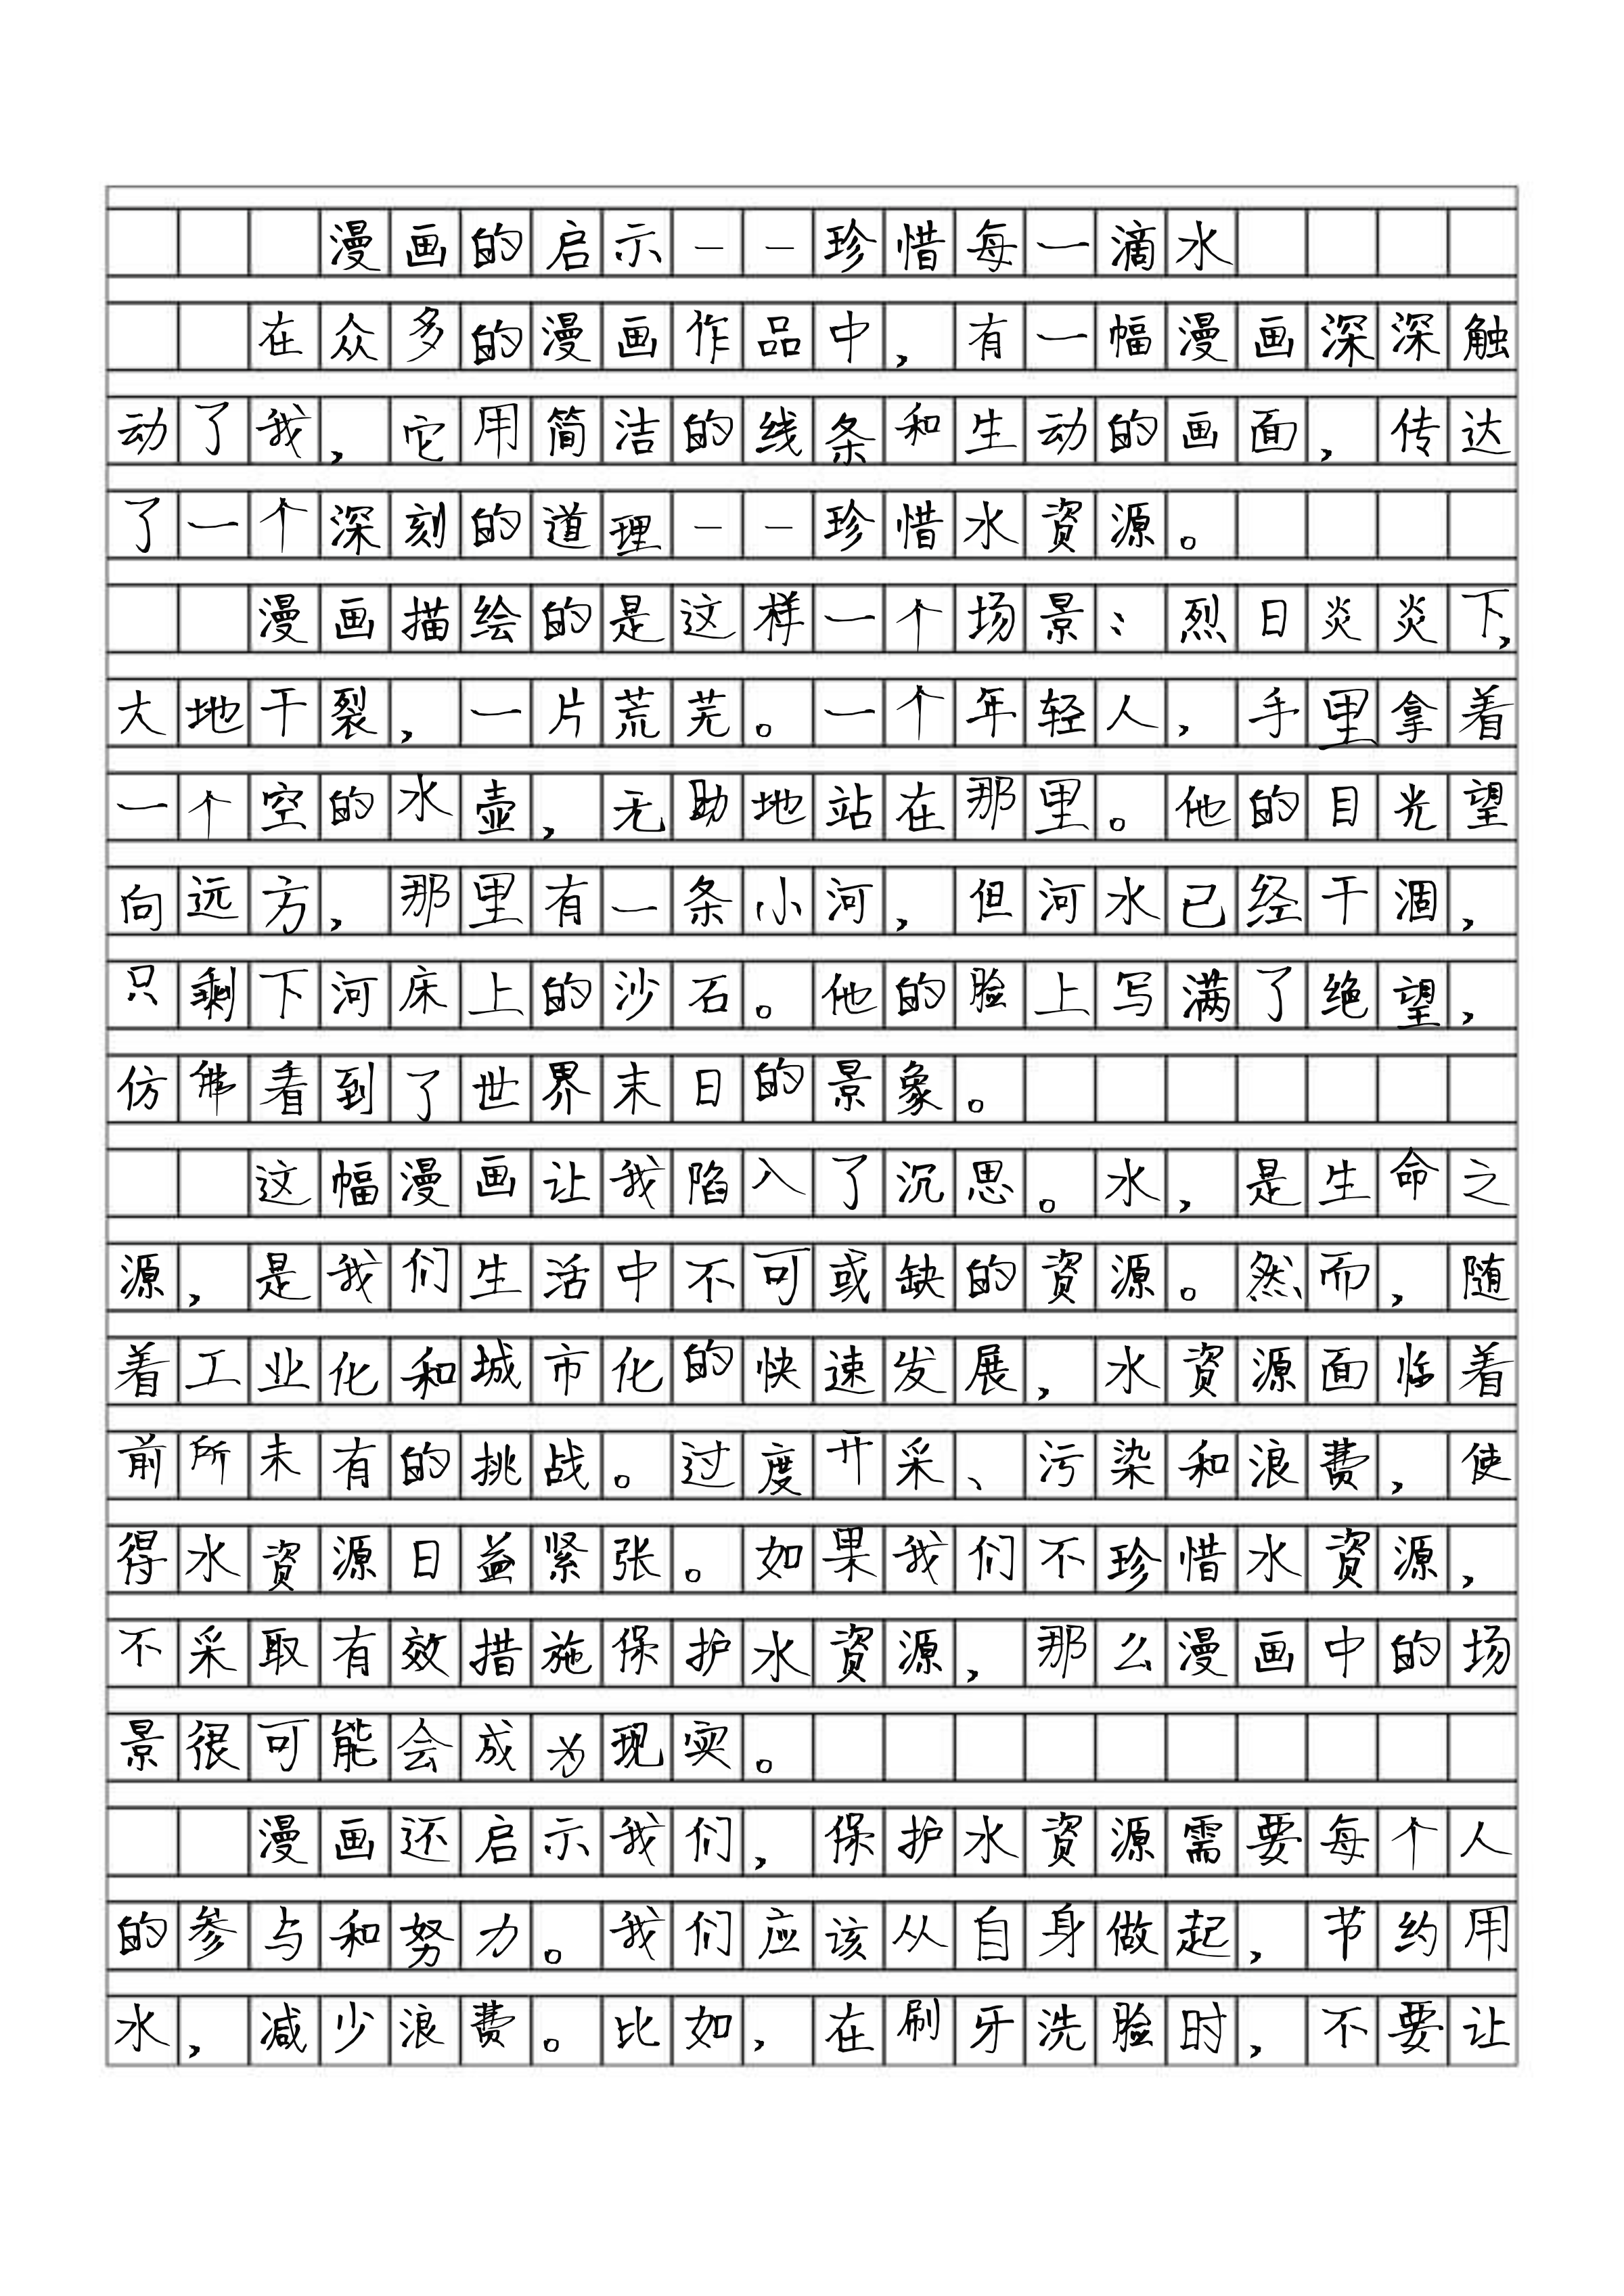 漫画的启示--珍惜每一滴水
在众多的漫画作品中,有一幅漫画深深触
动了我,它用简洁的线条和生动的画面,传达
了一个深刻的道理--珍惜水資源。
漫画描绘的是这样一个场景:烈日炎炎下,
大地干裂,一片荒芜。一个年轻人,手里拿着
一个空的水壶,无助地站在那里。他的目光望
向远方,那里有一条小河,但河水已经干涸,
只剩下河床上的沙石。他的脸上写满了绝望,
仿佛看到了世界末日的景象。
这幅漫画让我陷入了沉思。水,是生命之
源,是我们生活中不可或缺的資源。然而,随
着工业化和城市化的快速发展,水資源面临着
前所未有的挑战。过度开采、污染和浪费,使
得水資源日益紧张。如果我们不珍惜水資源,
不采取有效措施保护水資源,那么漫画中的场
景很可能会成为现实。
漫画还启示我们,保护水資源需要每个人
的参与和努力。我们应该从自身做起,节约用
水,减少浪费。比如,在刷牙洗脸时,不要让